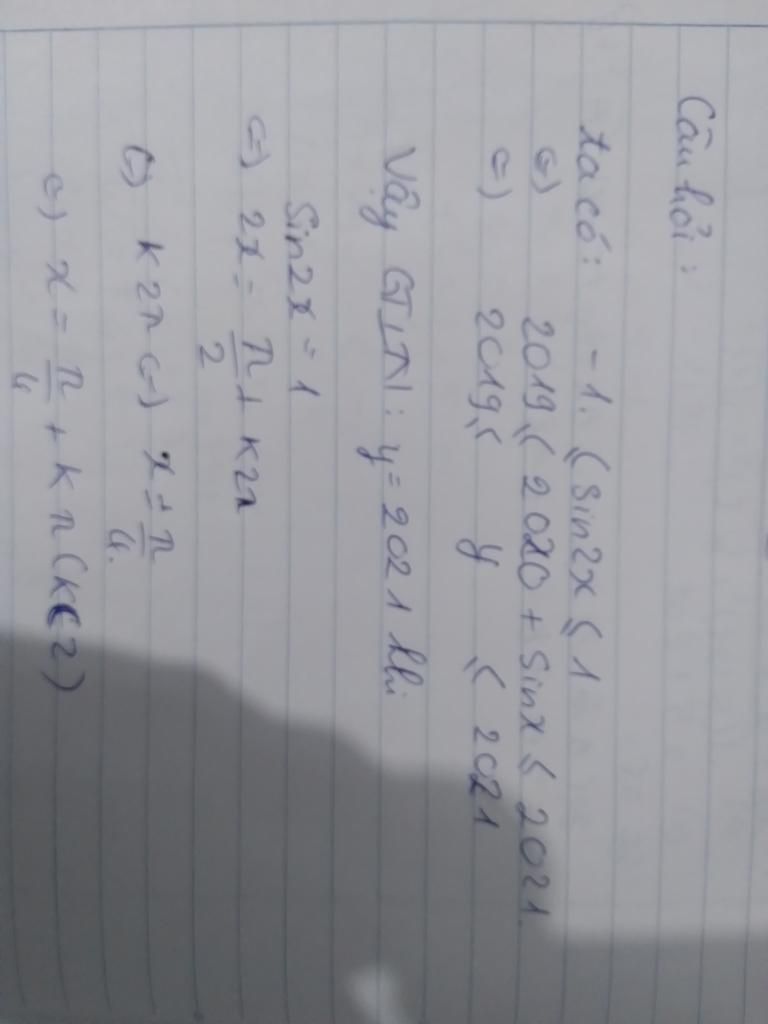 Câu hỏi :
ta có : - 1. ≤ sin2x ≤ 1
(=) 2019 ≤ 2020 + sinx ≤ 2021.
(=) 2019 ≤ y ≤ 2021
Vậy GTLN : y = 2021 khi
Sin2x = 1
(=) 2x = π/2 + K2π
(=) K2π (=) x = π/4.
(=) x = π/4 + K π (K ∈ Z)